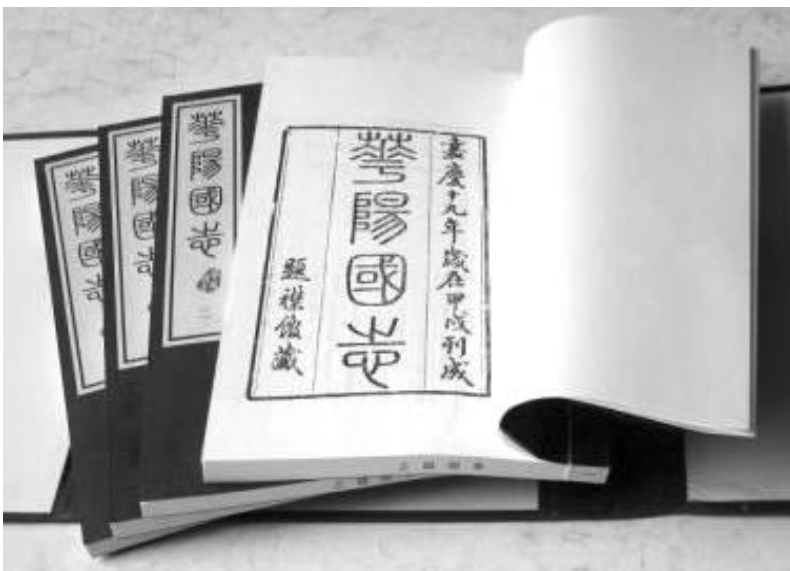 嘉慶十九年歲在甲戌刊成
華陽國志
題襟館藏
華陽國志
華陽國志
華陽國志